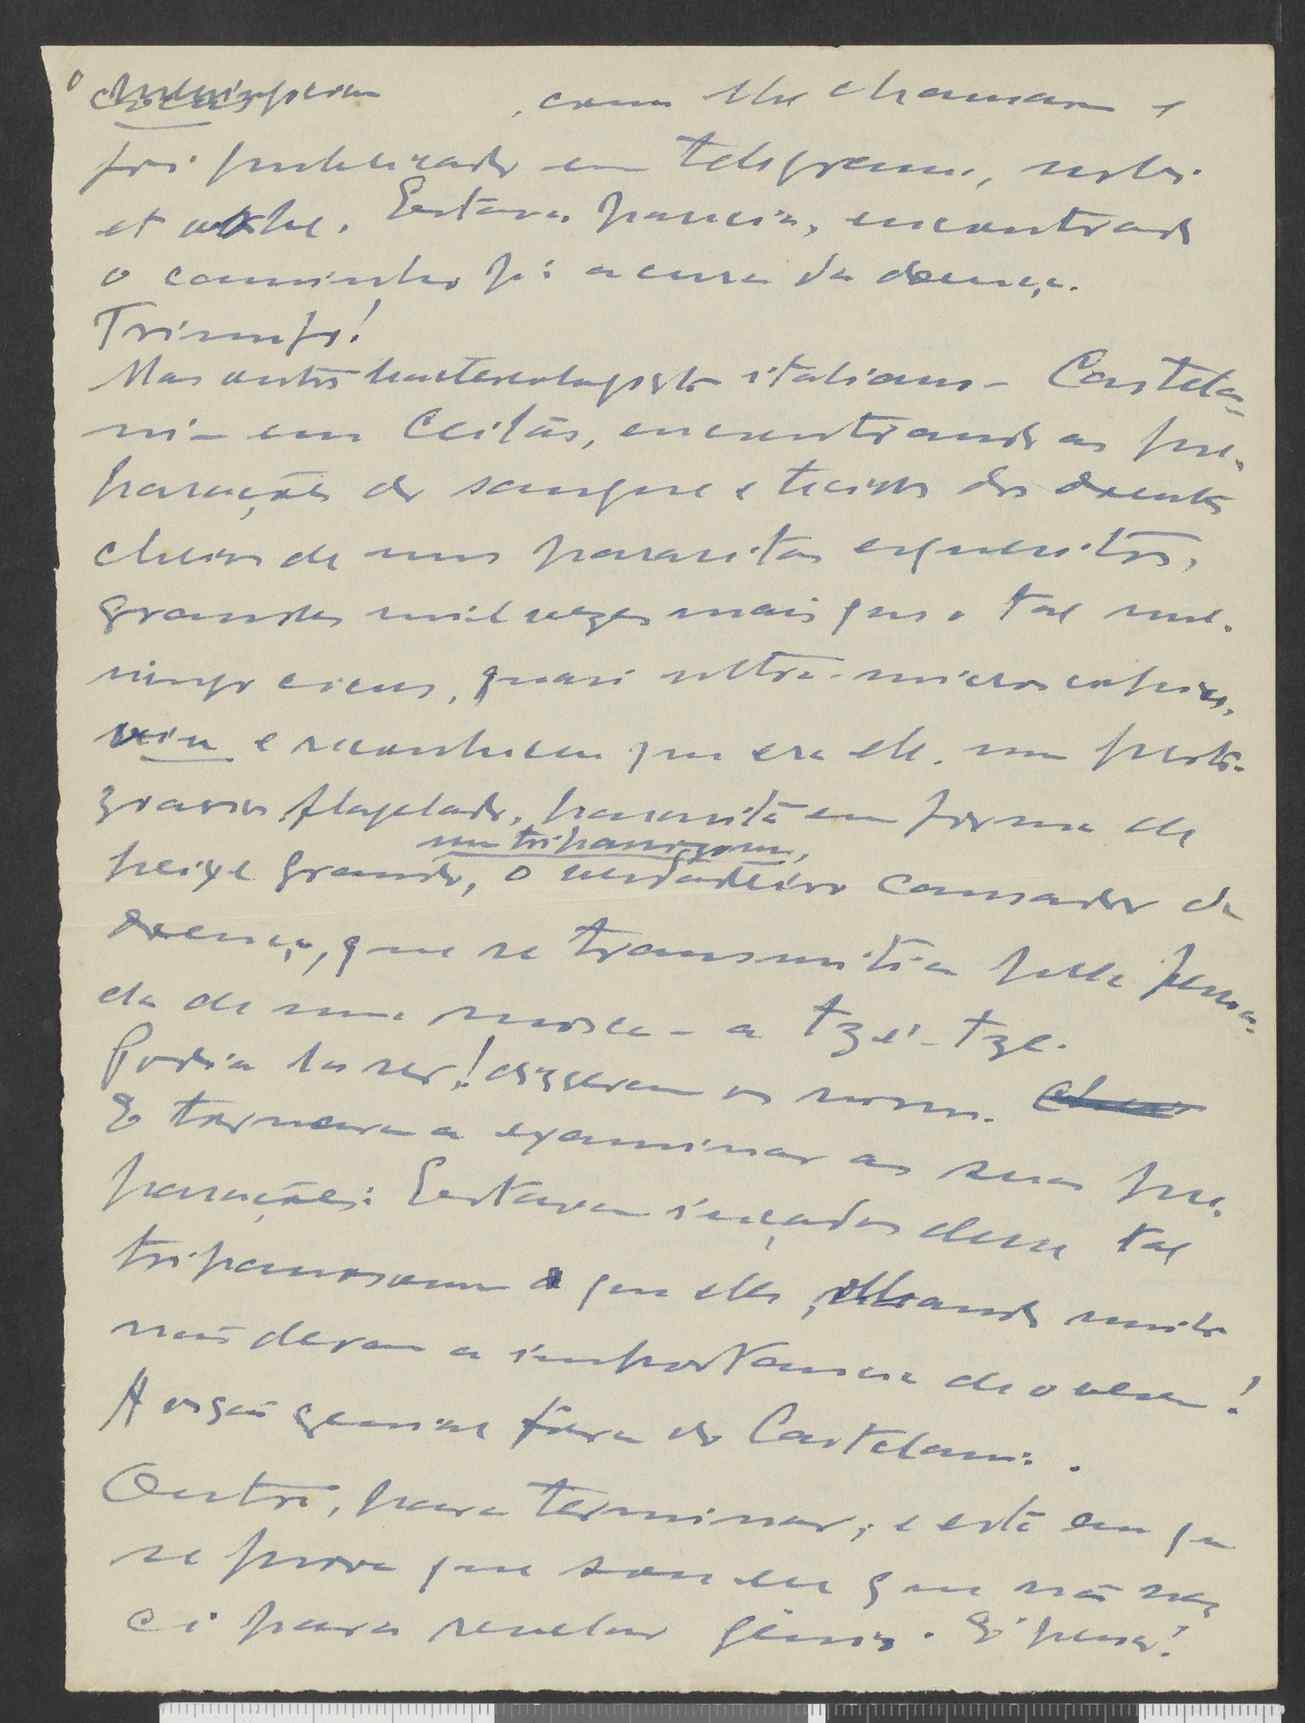 o , como lhe chamaram e
foi publicado em telegrama, urbi
et orbe. Estava, parecia, encontrado
o caminho p.ª a cura da doença.
Triunfo!
Mas outro bacteriologista italiano - Castela-
ni - em Ceilão, encontrando as pre-
parações de sangue e tecidos dos doentes
cheios de uns parasitas esquesitos,
grandes mil vezes mais que o tal me-
ningococus, quasi ultra-microscopico,
viu e reconheceu que era ele, um proto-
zoario flagelado, parasita em forma de
peixe grande, um tripanozoma, o verdadeiro causador da
doença, que se transmitia pela pica-
da de uma mosca - a tzé-tzé.
Podia lá ser! disseram os nossos.
E tornaram a examinar as suas pre-
parações: Estavam inçadas desse tal
tripanosoma a que eles, olhando muito
não deram a importancia de o verem!
A visão genial fôra do Castelani.
Outro, para terminar; e este em que
se prova que sou eu que não nas-
ci para revelar génios. É pena!